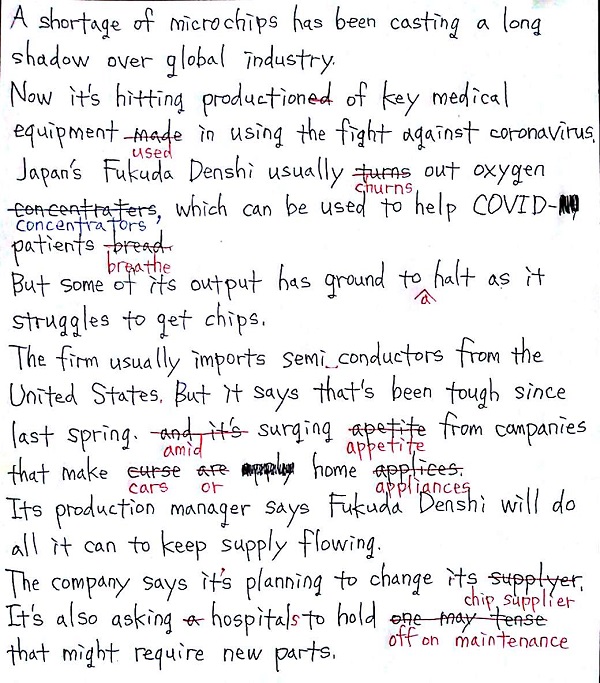 A shortage of microchips has been casting a long
shadow over global industry.
Now it's hitting productioned of key medical
equipment made in using the fight against coronavirus.
used
Japan's Fukuda Denshi usually turns out oxygen
churns
concentraters, which can be used to help COVID-
concentrators,
patients bread.
breathe
But some of its output has ground to halt as it
a
struggles to get chips.
The firm usually imports semi conductors from the
United States. But it says that's been tough since
last spring. and it's surging apetite from companies
amid appetite
that make curse are home applices.
cars or appliances
Its production manager says Fukuda Denshi will do
all it can to keep supply flowing.
The company says it's planning to change its supplyer.
chip supplier
It's also asking a hospitals to hold one may tense
off on maintenance
that might require new parts.